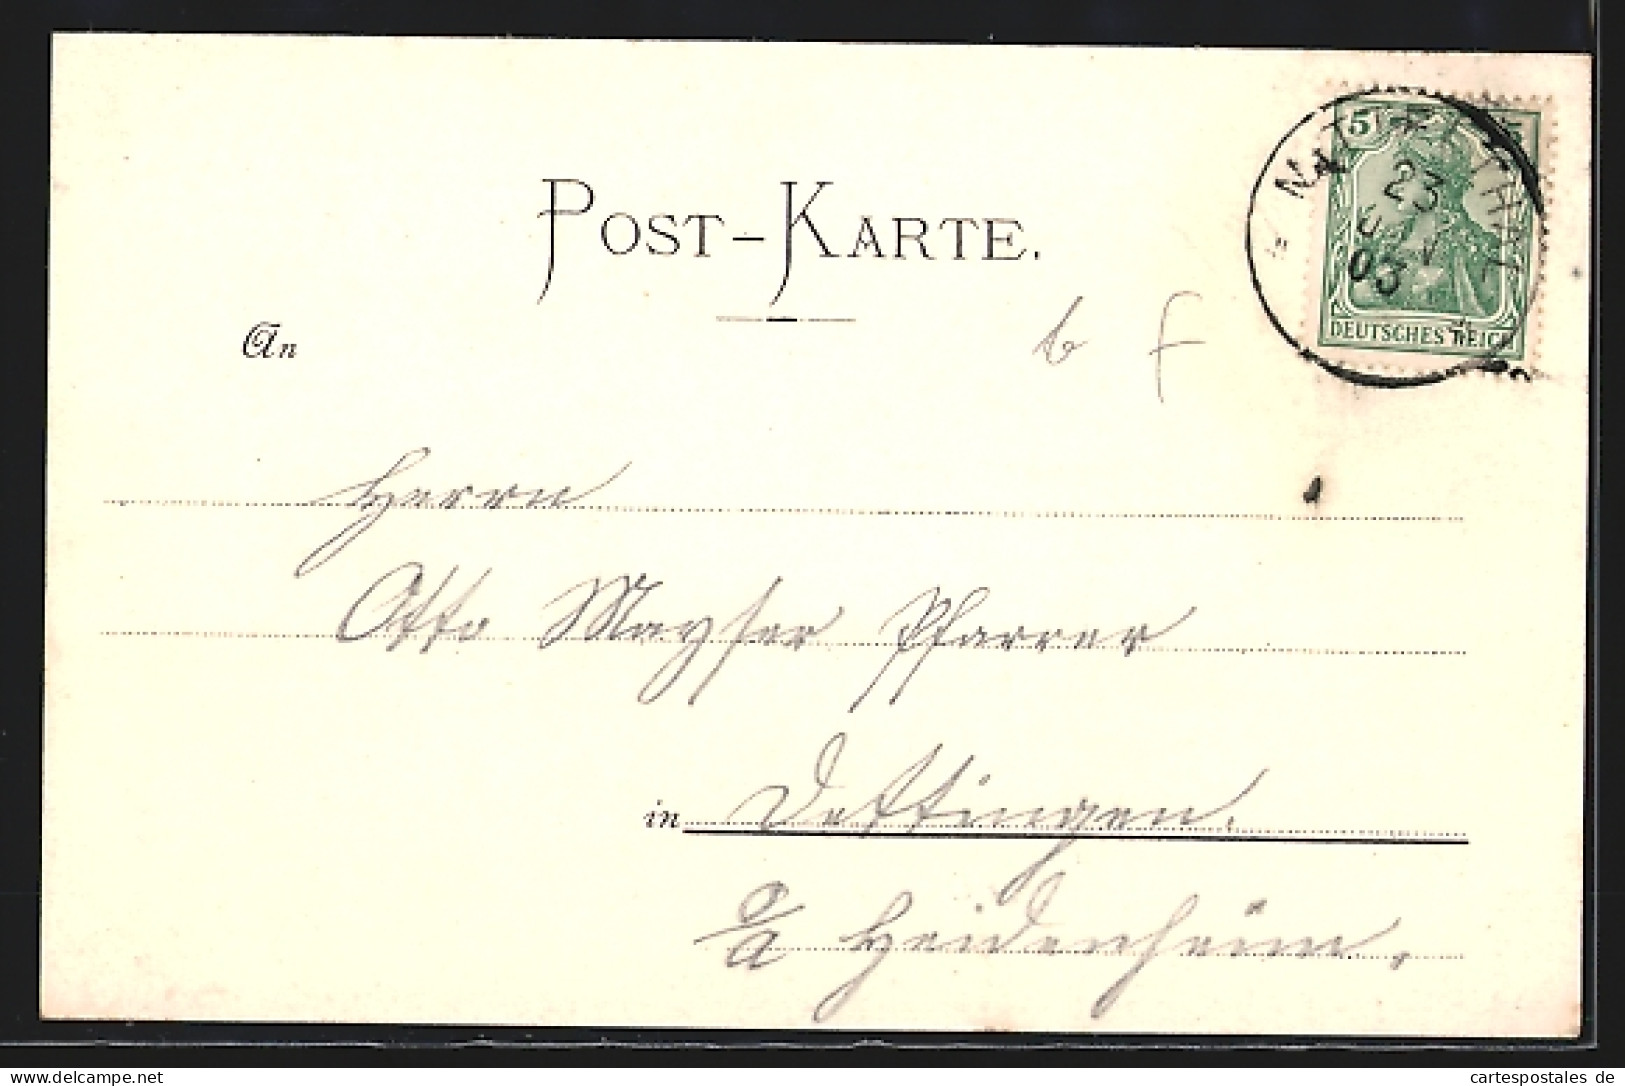 POST-KARTE.
5
23
03
DEUTSCHES REICH
An
b f
Herrn
Otto Mayser Pfarrer
in Dettingen.
O/A Heidenheim.
www.delcampe.net
cartespostales de